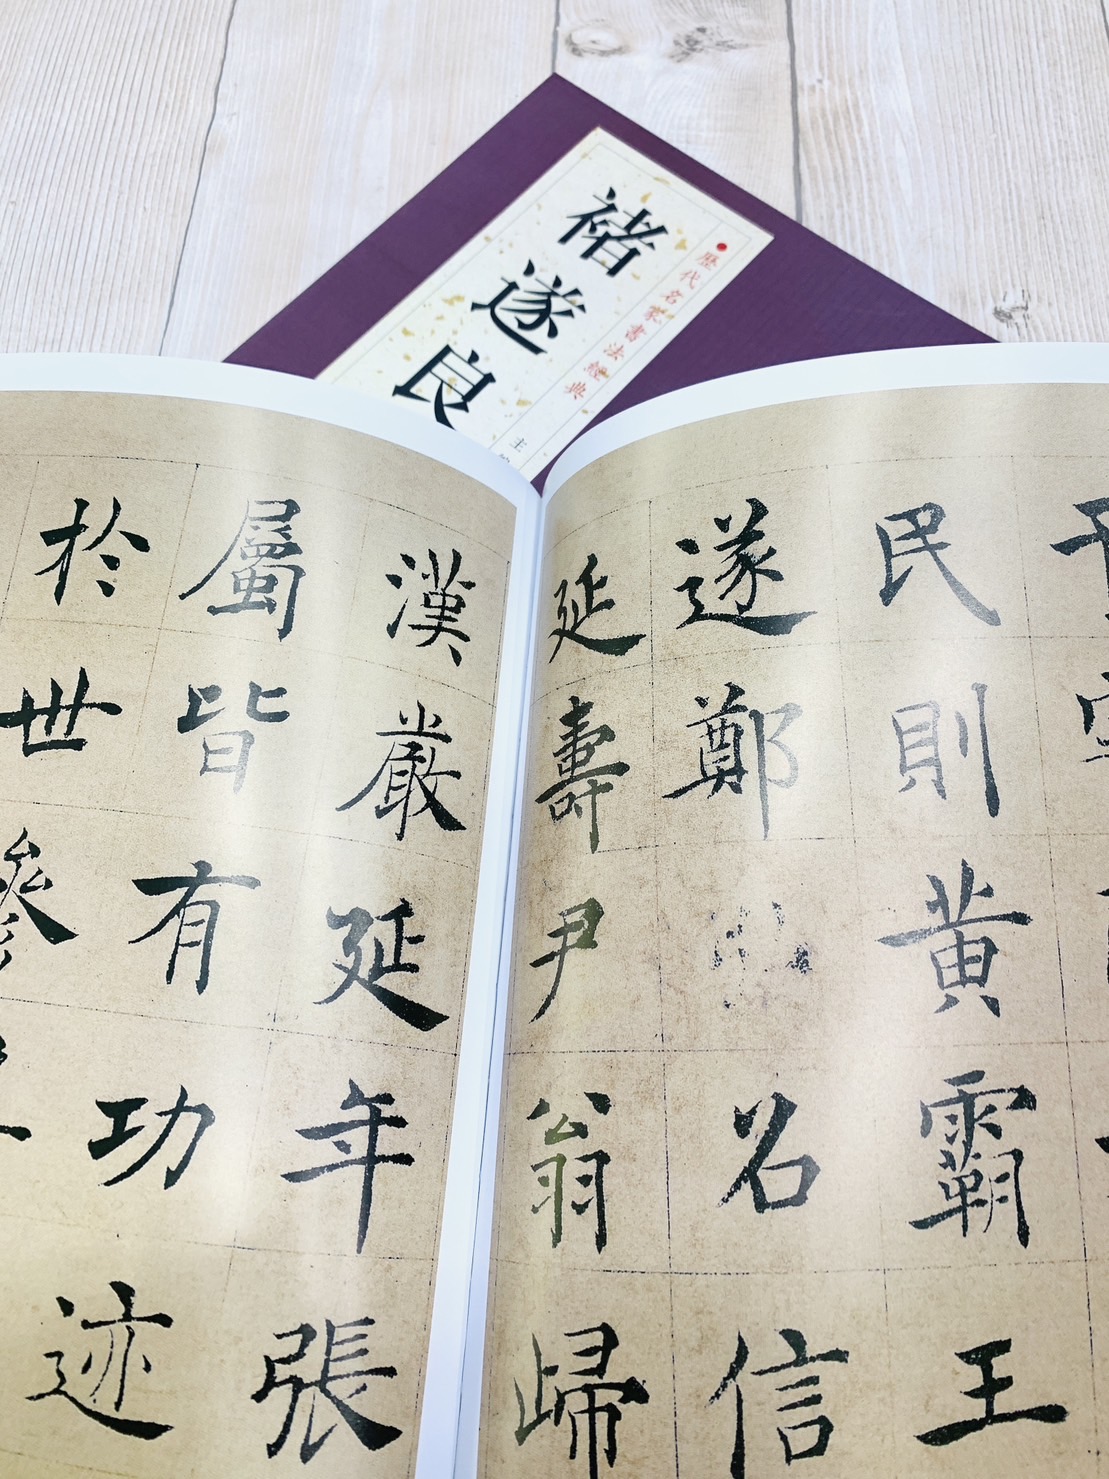 褚遂良
歷代名家書法經典
主
民則黃霸王
遂鄭名信
延壽尹翁歸
漢嚴延年張
屬皆有功迹
於世參